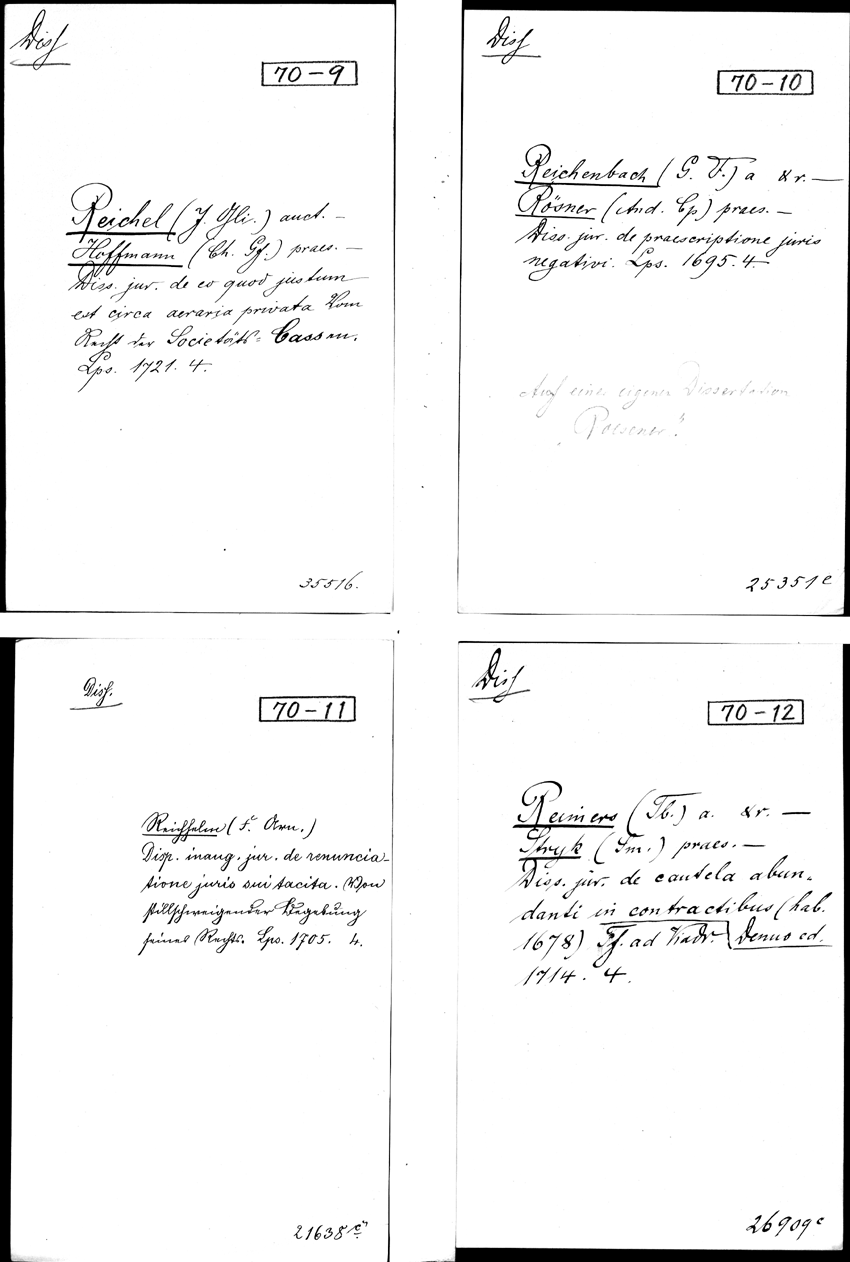 Diss
70-9
Reichel (J. Gli.) auct. —
Hoffmann (Ch. Gf.) praes. —
Diss. jur. de eo quod justum
est circa aeraria privata Vom
Recht der Societäts-Cassen.
Lps. 1721. 4.
35516.
Diss
70-10
Reichenbach (G. F.) a &r. —
Rösner (And. Cp.) praes. —
Diss. jur. de praescriptione juris
negativi. Lps. 1695. 4.
Auf einer eigenen Dissertation
„Roesener".
25351c
Diss.
70-11
Reichhelm (F. Arn.)
Disp. inaug. jur. de renuncia-
tione juris sui tacita. Von
stillschweigender Begebung
seines Rechts. Lps. 1705. 4.
21638
Diss
70-12
Reimers (Tb.) a. &r. —
Stryk (Sm.) praes. —
Diss. jur. de cautela abun-
danti in contractibus (hab.
1678) Tf. ad Viadr. Denuo ed.
1714. 4.
26909c